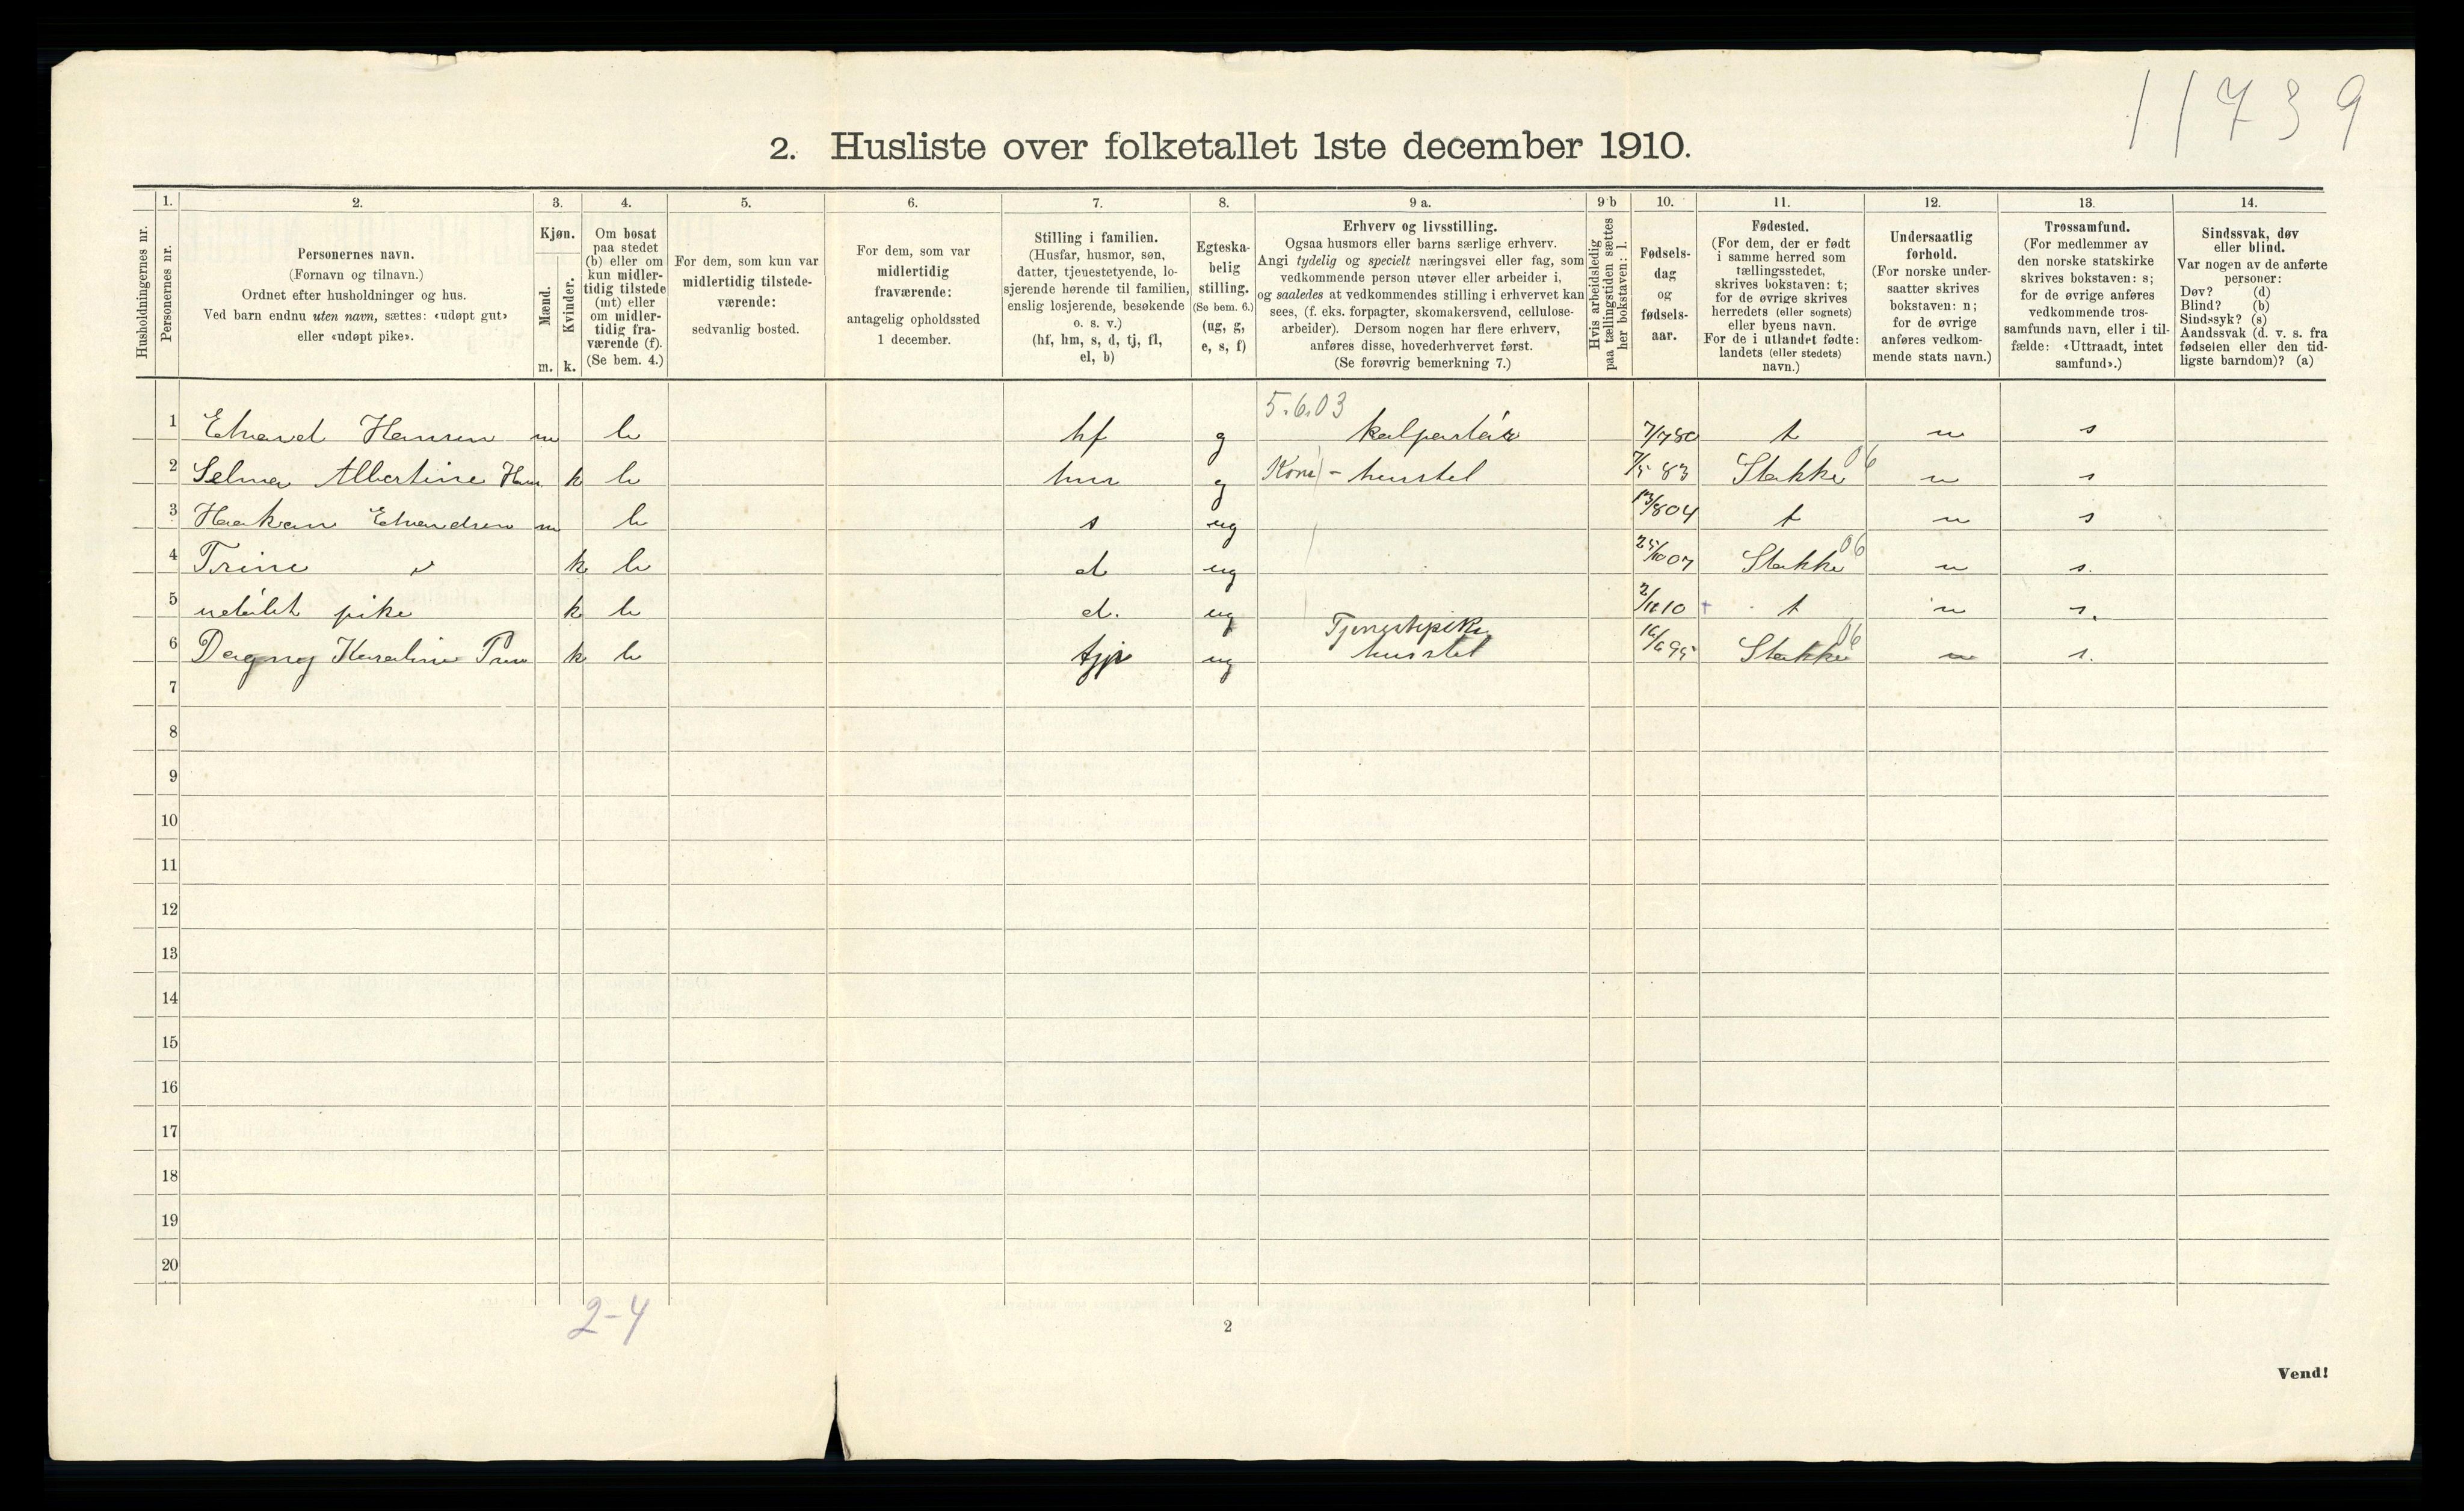 11739
2. Husliste over folketallet 1ste december 1910.
Husholdningernes nr.
1.
Personernes nr.
2.
Personernes navn.
(Fornavn og tilnavn.)
Ordnet efter husholdninger og hus.
Ved barn endnu uten navn, sættes: «udøpt gut»
eller «udøpt pike».
3.
Kjøn.
Mænd.
Kvinder.
m. k.
4.
Om bosat
paa stedet
(b) eller om
kun midler-
tidig tilstede
(mt) eller
om midler-
tidig fra-
værende (f).
(Se bem. 4.)
5.
For dem, som kun var
midlertidig tilstede-
værende:
sedvanlig bosted.
6.
For dem, som var
midlertidig
fraværende:
antagelig opholdssted
1 december.
7.
Stilling i familien.
(Husfar, husmor, søn,
datter, tjenestetyende, lo-
sjerende hørende til familien,
enslig losjerende, besøkende
o. s. v.)
(hf, hm, s, d, tj, fl,
el, b)
8.
Egteska-
belig
stilling.
(Se bem. 6.)
(ug, g,
e, s, f)
9 a.
Erhverv og livsstilling.
Ogsaa husmors eller barns særlige erhverv.
Angi tydelig og specielt næringsvei eller fag, som
vedkommende person utøver eller arbeider i,
og saaledes at vedkommendes stilling i erhvervet kan
sees, (f. eks. forpagter, skomakersvend, cellulose-
arbeider). Dersom nogen har flere erhverv,
anføres disse, hovederhvervet først.
(Se forøvrig bemerkning 7.)
9 b
Hvis arbeidsledig
paa tællingstiden sættes
her bokstaven: l.
10.
Fødsels-
dag
og
fødsels-
aar.
11.
Fødested.
(For dem, der er født
i samme herred som
tællingsstedet,
skrives bokstaven: t;
for de øvrige skrives
herredets (eller sognets)
eller byens navn.
For de i utlandet fødte:
landets (eller stedets)
navn.)
12.
Undersaatlig
forhold.
(For norske under-
saatter skrives
bokstaven: n;
for de øvrige
anføres vedkom-
mende stats navn.)
13.
Trossamfund.
(For medlemmer av
den norske statskirke
skrives bokstaven: s;
for de øvrige anføres
vedkommende tros-
samfunds navn, eller i til-
fælde: «Uttraadt, intet
samfund».)
14.
Sindssvak, døv
eller blind.
Var nogen av de anførte
personer:
Døv? (d)
Blind? (b)
Sindssyk? (s)
Aandssvak (d. v. s. fra
fødselen eller den tid-
ligste barndom)? (a)
5.6.03
1 Edvard Hansen m b hf g kolportør t n s
2 Selma Albertine Han k b hm g Kone - husstel 7/5 83 Stokke 06 n s
3 Haakon Edvardsen m b s ug 13/8 04 t n s
4 Trine v k b d ug 25/10 07 Stokke 06 n s.
5 udøbt pike k b d. ug 2/11 10 t n s.
Tjenestepike
6 Dagny Karoline k b tj ug husstel 16/6 95 Stokke 06 n s.
7
8
9
10
11
12
13
14
15
16
17
18
19
20
2-4
2
Vend!